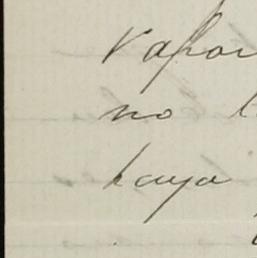 vapor
no
haya